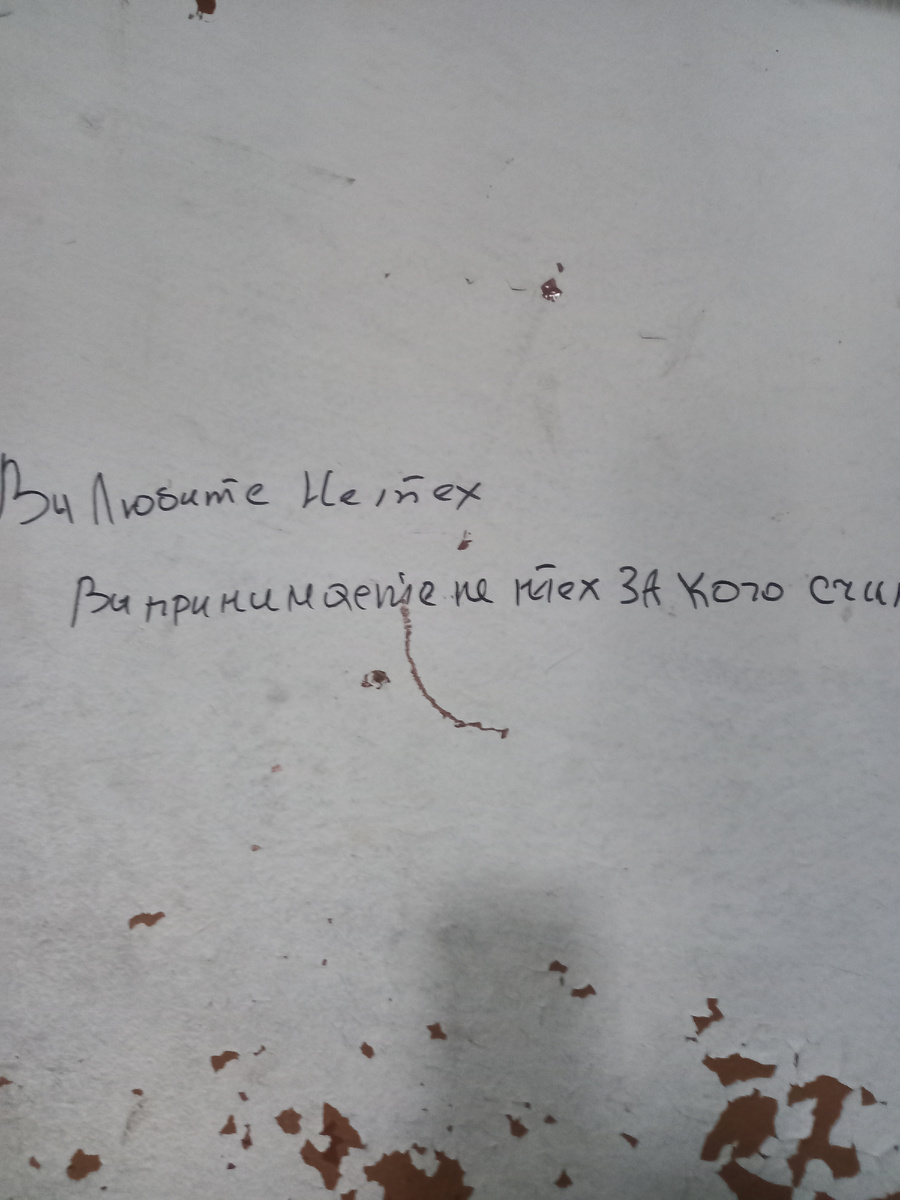 Ви Любите Не тех
Ви принимаете не тех ЗА кого счи